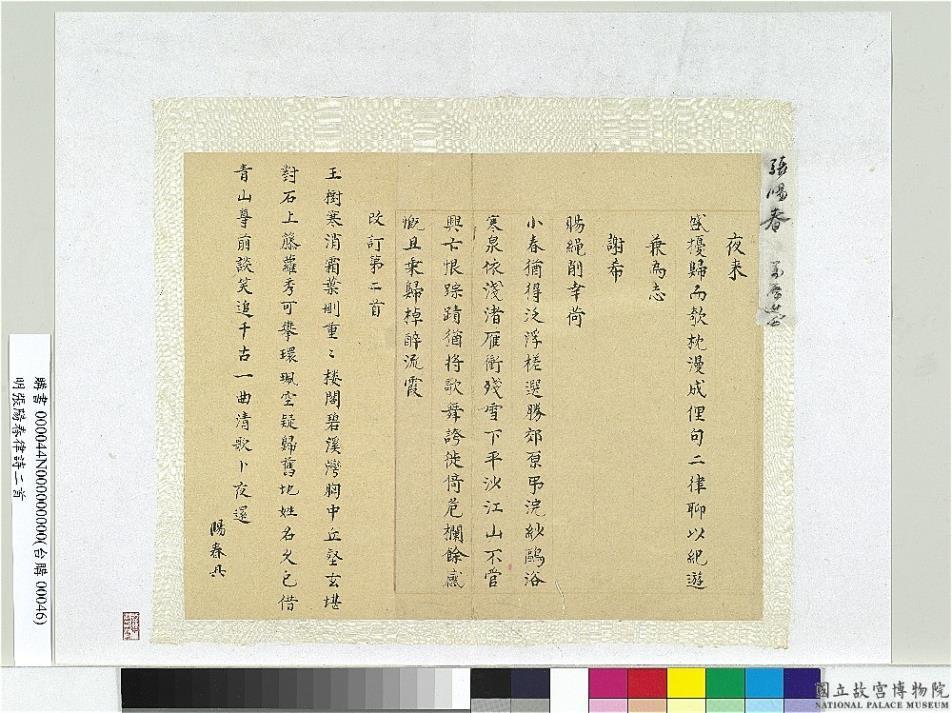 張暘春
夜来
盛擾歸而欹枕漫成俚句二律聊以紀遊
兼為志
謝希
賜繩削幸荷
小春猶得泛浮槎選勝郊原弔浣紗鷗浴
寒泉依淺渚雁銜殘雪下平沙江山不管
興亡恨踪蹟猶將歌舞誇徙倚危欄餘感
慨且乘歸棹醉流霞
改訂第二首
玉樹寒消霜葉刪重〻楼閣碧溪灣胸中丘壑玄堪
對石上藤蘿秀可攀環珮空疑歸舊地姓名久已借
青山尊前談笑追千古一曲清歌卜夜還
暘春
購書 000044N000000000(台購 00046)
明張暘春律詩二首
國立故宮博物院
NATIONAL PALACE MUSEUM